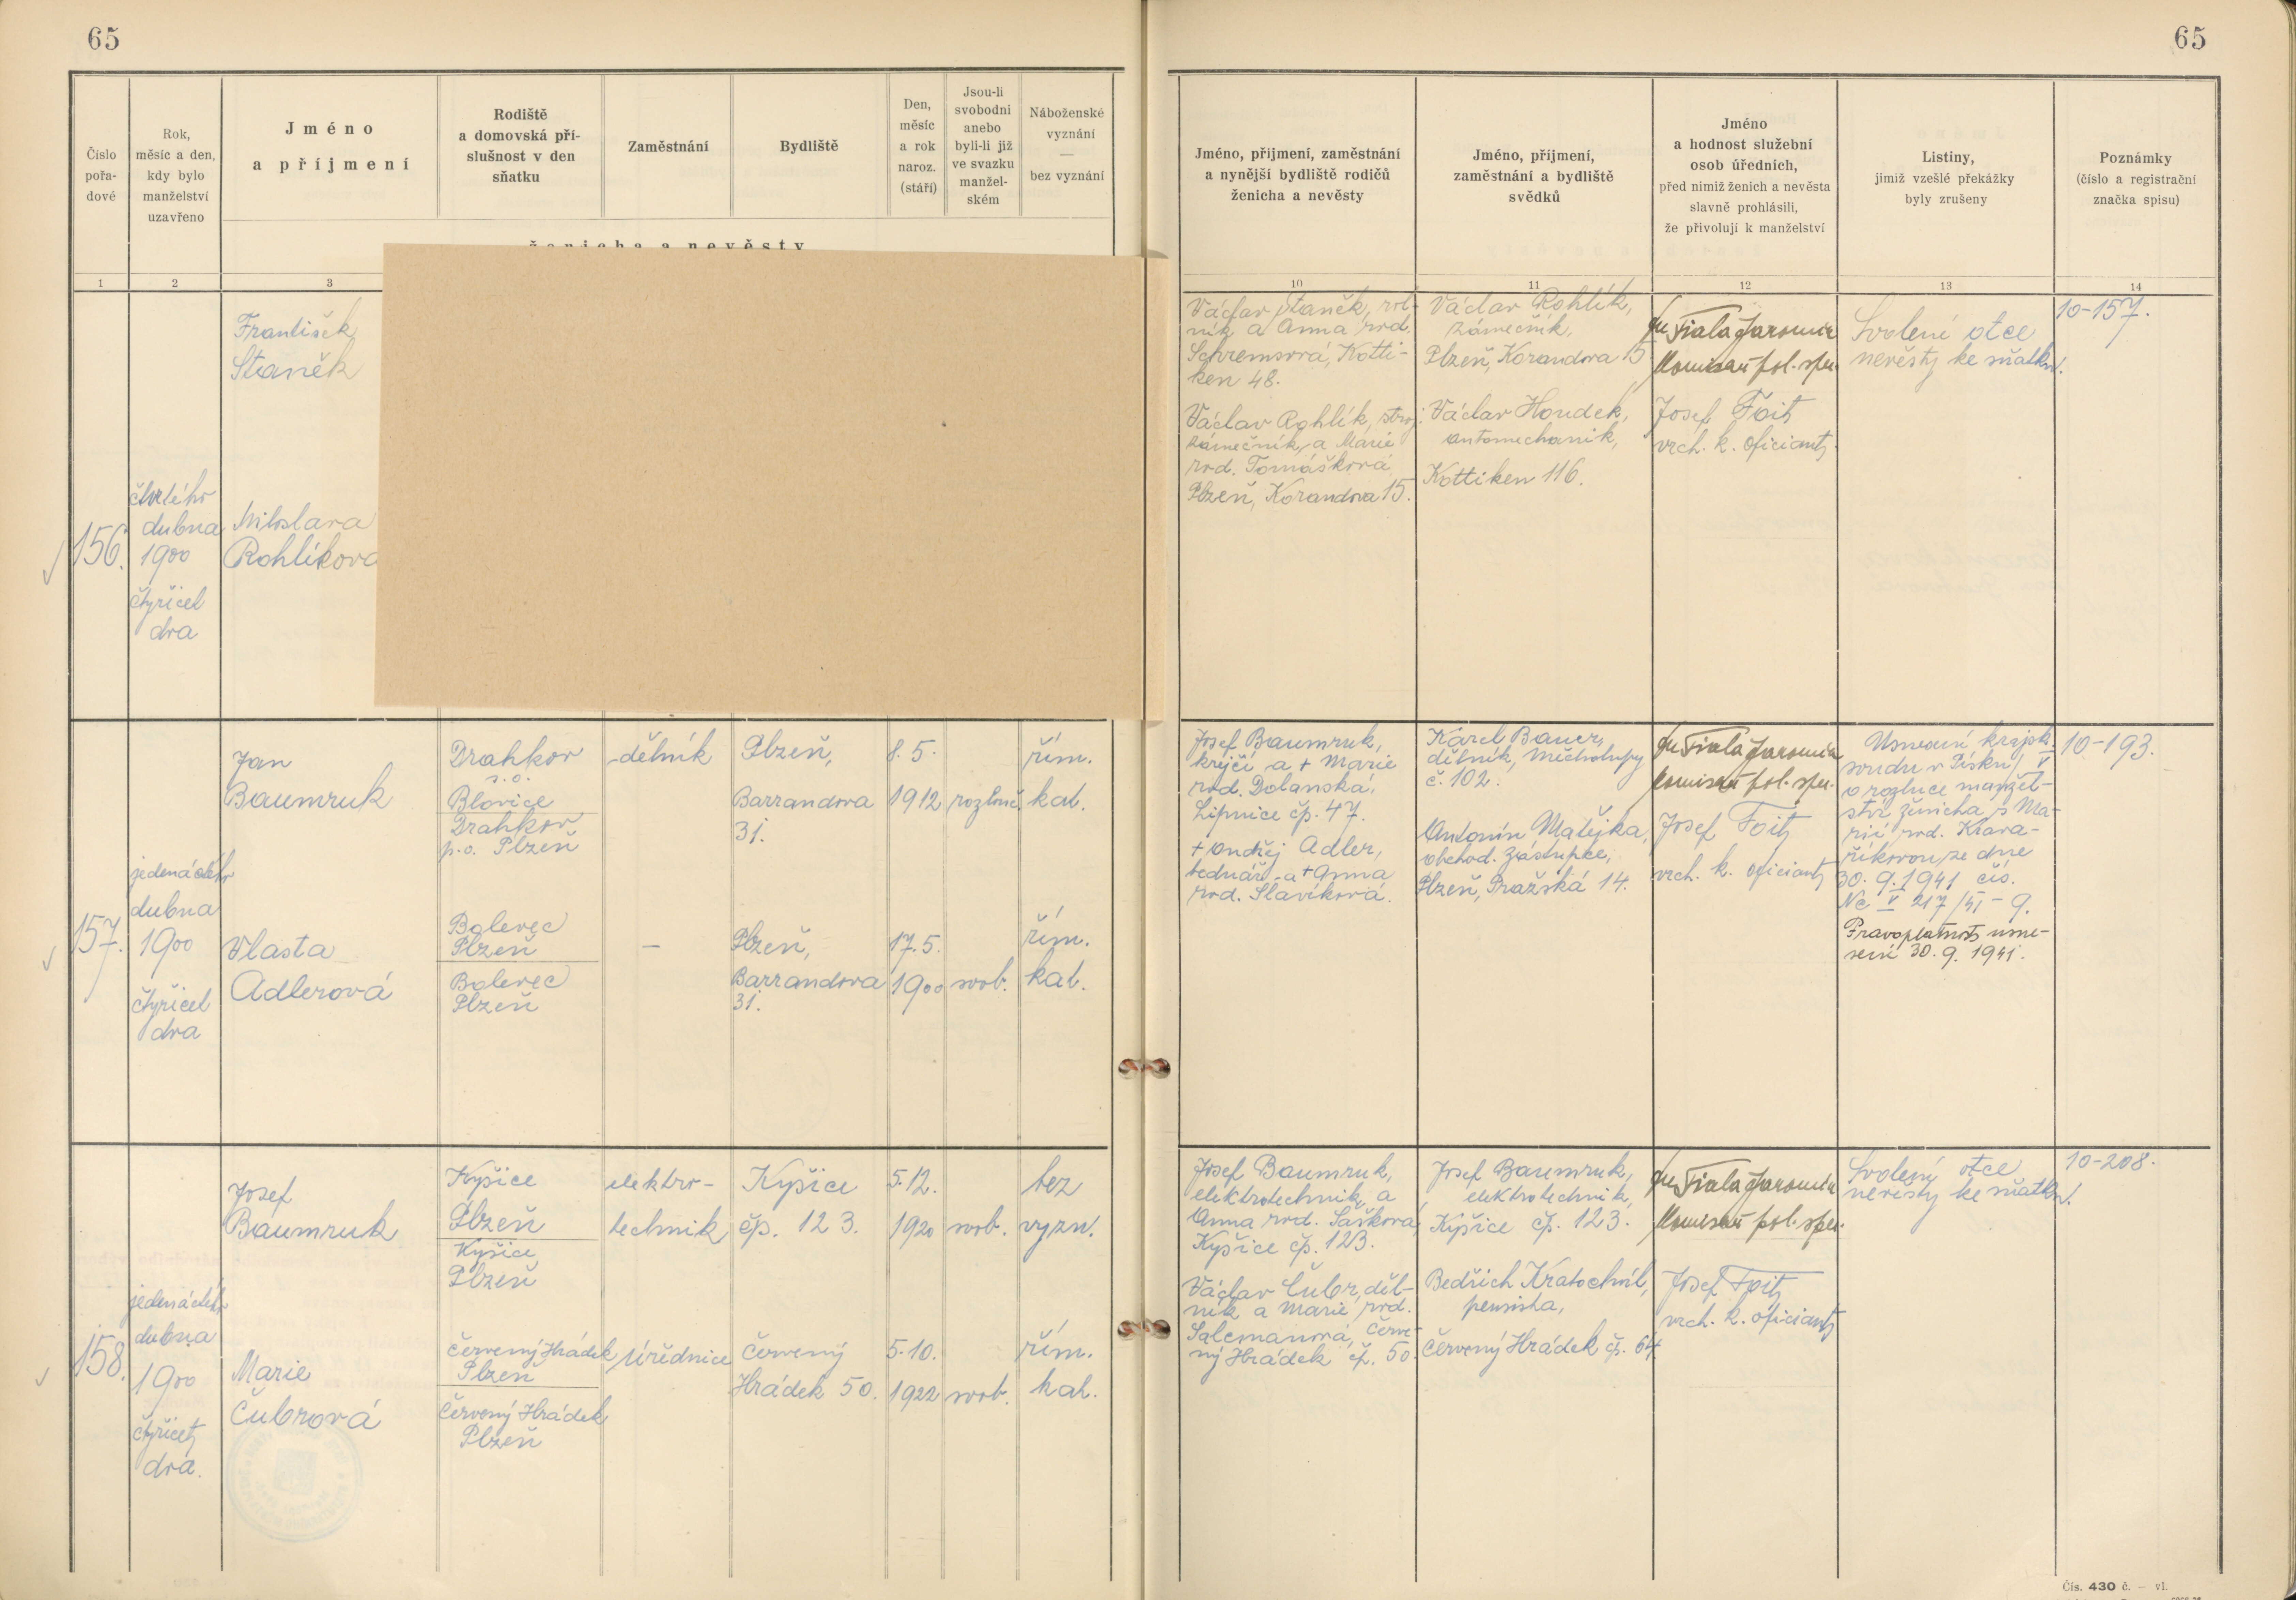 65
65
Číslo
pořa-
dové
Rok,
měsíc a den,
kdy bylo
manželství
uzavřeno
Jméno
a příjmení
Rodiště
a domovská pří-
slušnost v den
sňatku
Zaměstnání
Bydliště
Den,
měsíc
a rok
naroz.
(stáří)
Jsou-li
svobodni
anebo
byli-li již
ve svazku
manžel-
ském
Náboženské
vyznání
—
bez vyznání
ženicha a nevěsty
Jméno, příjmení, zaměstnání
a nynější bydliště rodičů
ženicha a nevěsty
Jméno, příjmení,
zaměstnání a bydliště
svědků
Jméno
a hodnost služební
osob úředních,
před nimiž ženich a nevěsta
slavně prohlásili,
že přivolují k manželství
Listiny,
jimiž vzešlé překážky
byly zrušeny
Poznámky
(číslo a registrační
značka spisu)
1
2
3
10
11
12
13
14
156.
čtvrtého
dubna
1900
čtyřicet
dva
František
Staněk
Miloslava
Rohlíková
Václav Staněk, rol-
ník a Anna rod.
Schremsová, Kotti-
ken 48.
Václav Rohlík, stroj.
zámečník, a Marie
rod. Tomášková
Plzeň, Korandova 15.
Václav Rohlík,
zámečník,
Plzeň, Korandova 15
Václav Houdek,
automechanik,
Kottiken 116.
Fiala Jaromír
komisař pol. spr.
Josef Foit
vrch. k. oficiant
Svolení otce
nevěsty ke sňatku.
10-157.
157.
jedenáctého
dubna
1900
čtyřicet
dva
Jan
Baumruk
Drahkov
s.o.
Blovice
Drahkov
p.o. Plzeň
dělník
Plzeň,
Barrandova
31.
8. 5.
1912
rozluč.
řím.
kat.
Vlasta
Adlerová
Bolevec
Plzeň
Bolevec
Plzeň
—
Plzeň,
Barrandova
31.
17. 5.
1900
svob.
řím.
kat.
Josef Baumruk,
krejčí a + Marie
rod. Dolanská,
Lipnice čp. 47.
+ Ondřej Adler,
bednář a + Anna
rod. Slavíková.
Karel Bauer,
dělník, Měcholupy
č. 102.
Antonín Matějka,
obchod. zástupce,
Plzeň, Pražská 14.
Fiala Jaromír
komisař pol. spr.
Josef Foit
vrch. k. oficiant
Usnesení krajsk.
soudu v Písku, V
o rozluce manžel-
ství ženicha s Ma-
rií rod. Krava-
říkovou, ze dne
30. 9. 1941 čís.
Nc V 217/41 - 9.
Pravoplatnost usne-
sení 30. 9. 1941.
10-193.
158.
jedenáctého
dubna
1900
čtyřicet
dva.
Josef
Baumruk
Kyšice
Plzeň
Kyšice
Plzeň
elektro-
technik
Kyšice
čp. 123.
5. 12.
1920
svob.
bez
vyzn.
Marie
Čubrová
Červený Hrádek
Plzeň
Červený Hrádek
Plzeň
úřednice
Červený
Hrádek 50.
5. 10.
1922
svob.
řím.
kat.
Josef Baumruk,
elektrotechnik a
Anna rod. Šašková,
Kyšice čp. 123.
Václav Čubr, děl-
ník a Marie rod.
Salcmanová, Červe-
ný Hrádek čp. 50.
Josef Baumruk,
elektrotechnik,
Kyšice čp. 123.
Bedřich Kratochvíl,
pensista,
Červený Hrádek čp. 64.
Fiala Jaromír
komisař pol. spr.
Josef Foit
vrch. k. oficiant
Svolení otce
nevěsty ke sňatku.
10-208.
Čís. 430 č. — vl.